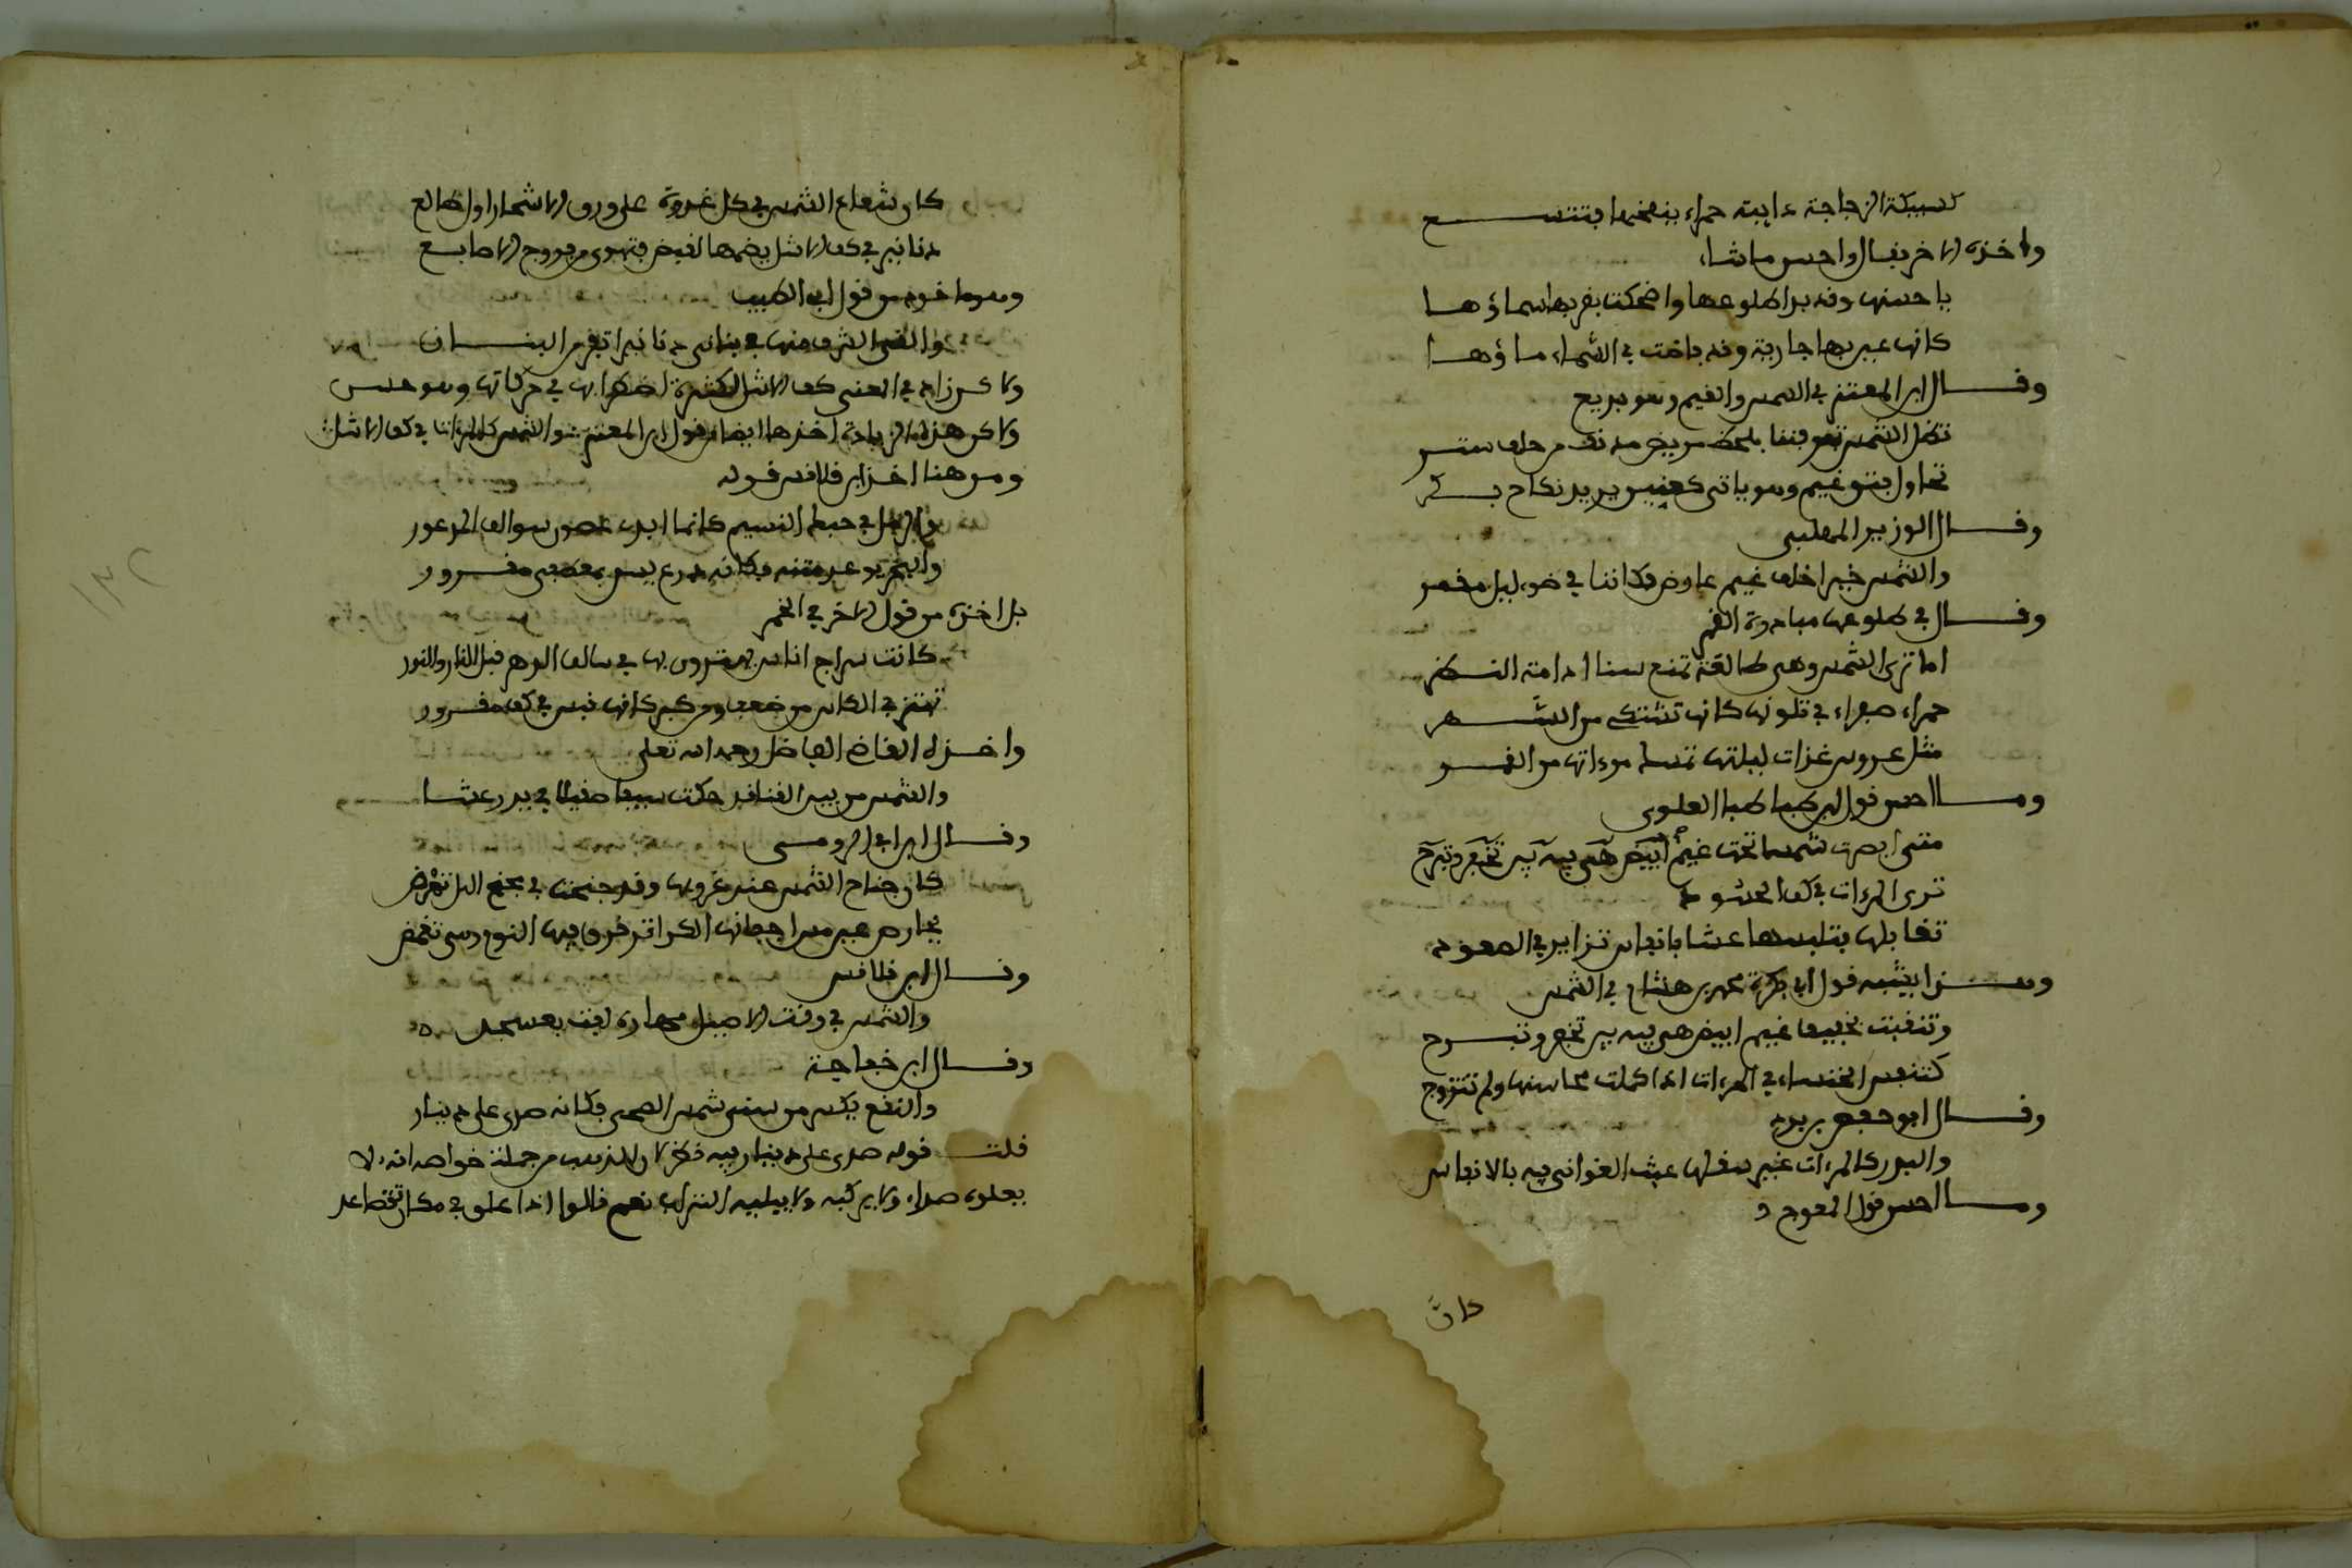 كسبيكة الزجاجة ذايبة حمراء ينفخها فتتسع
واخذه الاخر فقال واحسن ما شاء
يا حسنها وقد بدا طلوعها واضحكت بقربها سماؤها
كانها عين بها جارية وقد فاضت في السماء ماؤها
وقال ابن المعتز في الشمس والغيم وهو بديع
تظل الشمس ترمقنا بلحظ مريض مدنف من خلف ستر
تحاول فتق غيم وهو ياتي كعنين يريد نكاح بكر
وقال الوزير المهلبي
والشمس خيرا خلف غيم عارض فكاننا في ضوء ليل مقمر
وقال في طلوعها مبادرة القمر
اما ترى الشمس وهي طالعة تمنع منا ادامة النظر
حمراء صفراء في تلونها كانها تشتكي من السهر
مثل عروس غداة ليلتها تمسك مرءاتها من القمر
وما احسن قول ابن طباطبا العلوي
متى ابصرت شمسا تحت غيم
ترى المرءات في كف الحسود
تقابلها فتلبسها غشا بانفاس تزايد في الصعود
ومن هذا يشبه قول ابي بكر محمد بن هشام في الشمس
وتنقبت بخفيف غيم ابيض هي فيه بين تخفر وتبرج
كتنفس الحسناء في المرءات اذا كملت محاسنها ولم تتزوج
وقال ابو حفص بن برد
والبدر كالمرءات غير صقلها عبث الغواني فيه بالانفاس
وما احسن قول المعوج
كان
كان شعاع الشمس في كل غدوة على ورق الاشجار اول طالع
دنانير في كف الاشل يضمها لقبض فتهوى من فروج الاصابع
وهو ماخوذ من قول ابي الطيب
والقى الشرق منها في بناني دنانيرا تفر من البنان
ولاكن زاد في المعنى كف الاشل لكثرة اضطرابها في حركاتها وهو حسن
ولاكن هذه الزيادة اخذها ايضا من قول ابن المعتز والشمس كالمرءات في كف الاشل
ومن هنا اخذ ابن قلاقس قوله
والرمل في حبك النسيم كانما ابدى غصون سوالف المذعور
والبحر يرعد متنه فكانه درع يسن بمعطفي مقرور
بل اخذه من قول الاخر في الخمر
كانت سراج اناس يهتدون بها في سالف الدهر قبل النار والنور
تهتز في الكاس من ضعف ومن كبر كانها قبس في كف مقرور
واخذه القاضي الفاضل رحمه الله تعلى
والشمس من بين الغنافد حكت سيفا صقيلا في يد رعشا
وقال ابن الرومي
كان جناح الشمس عند غروبها وقد جنحت في مجنح الليل تمرض
تخاوص عين مس اجفانها الكرا ترنق فيها النوم وهي تغمض
وقال ابن قلاقس
والشمس في وقت الاصيل بهارة لفت بعسجد
وقال ابن خفاجة
والنقع يكسر من سنى شمس الضحى فكانه صدى على دينار
قلت قوله صدى على دينار فيه نظر لان الذهب من جملة خواصه انه لا
يعلوه صداء ولا يركبه ولا يبليه التراب نعم قالوا اذا علق في مكان تتصاعد